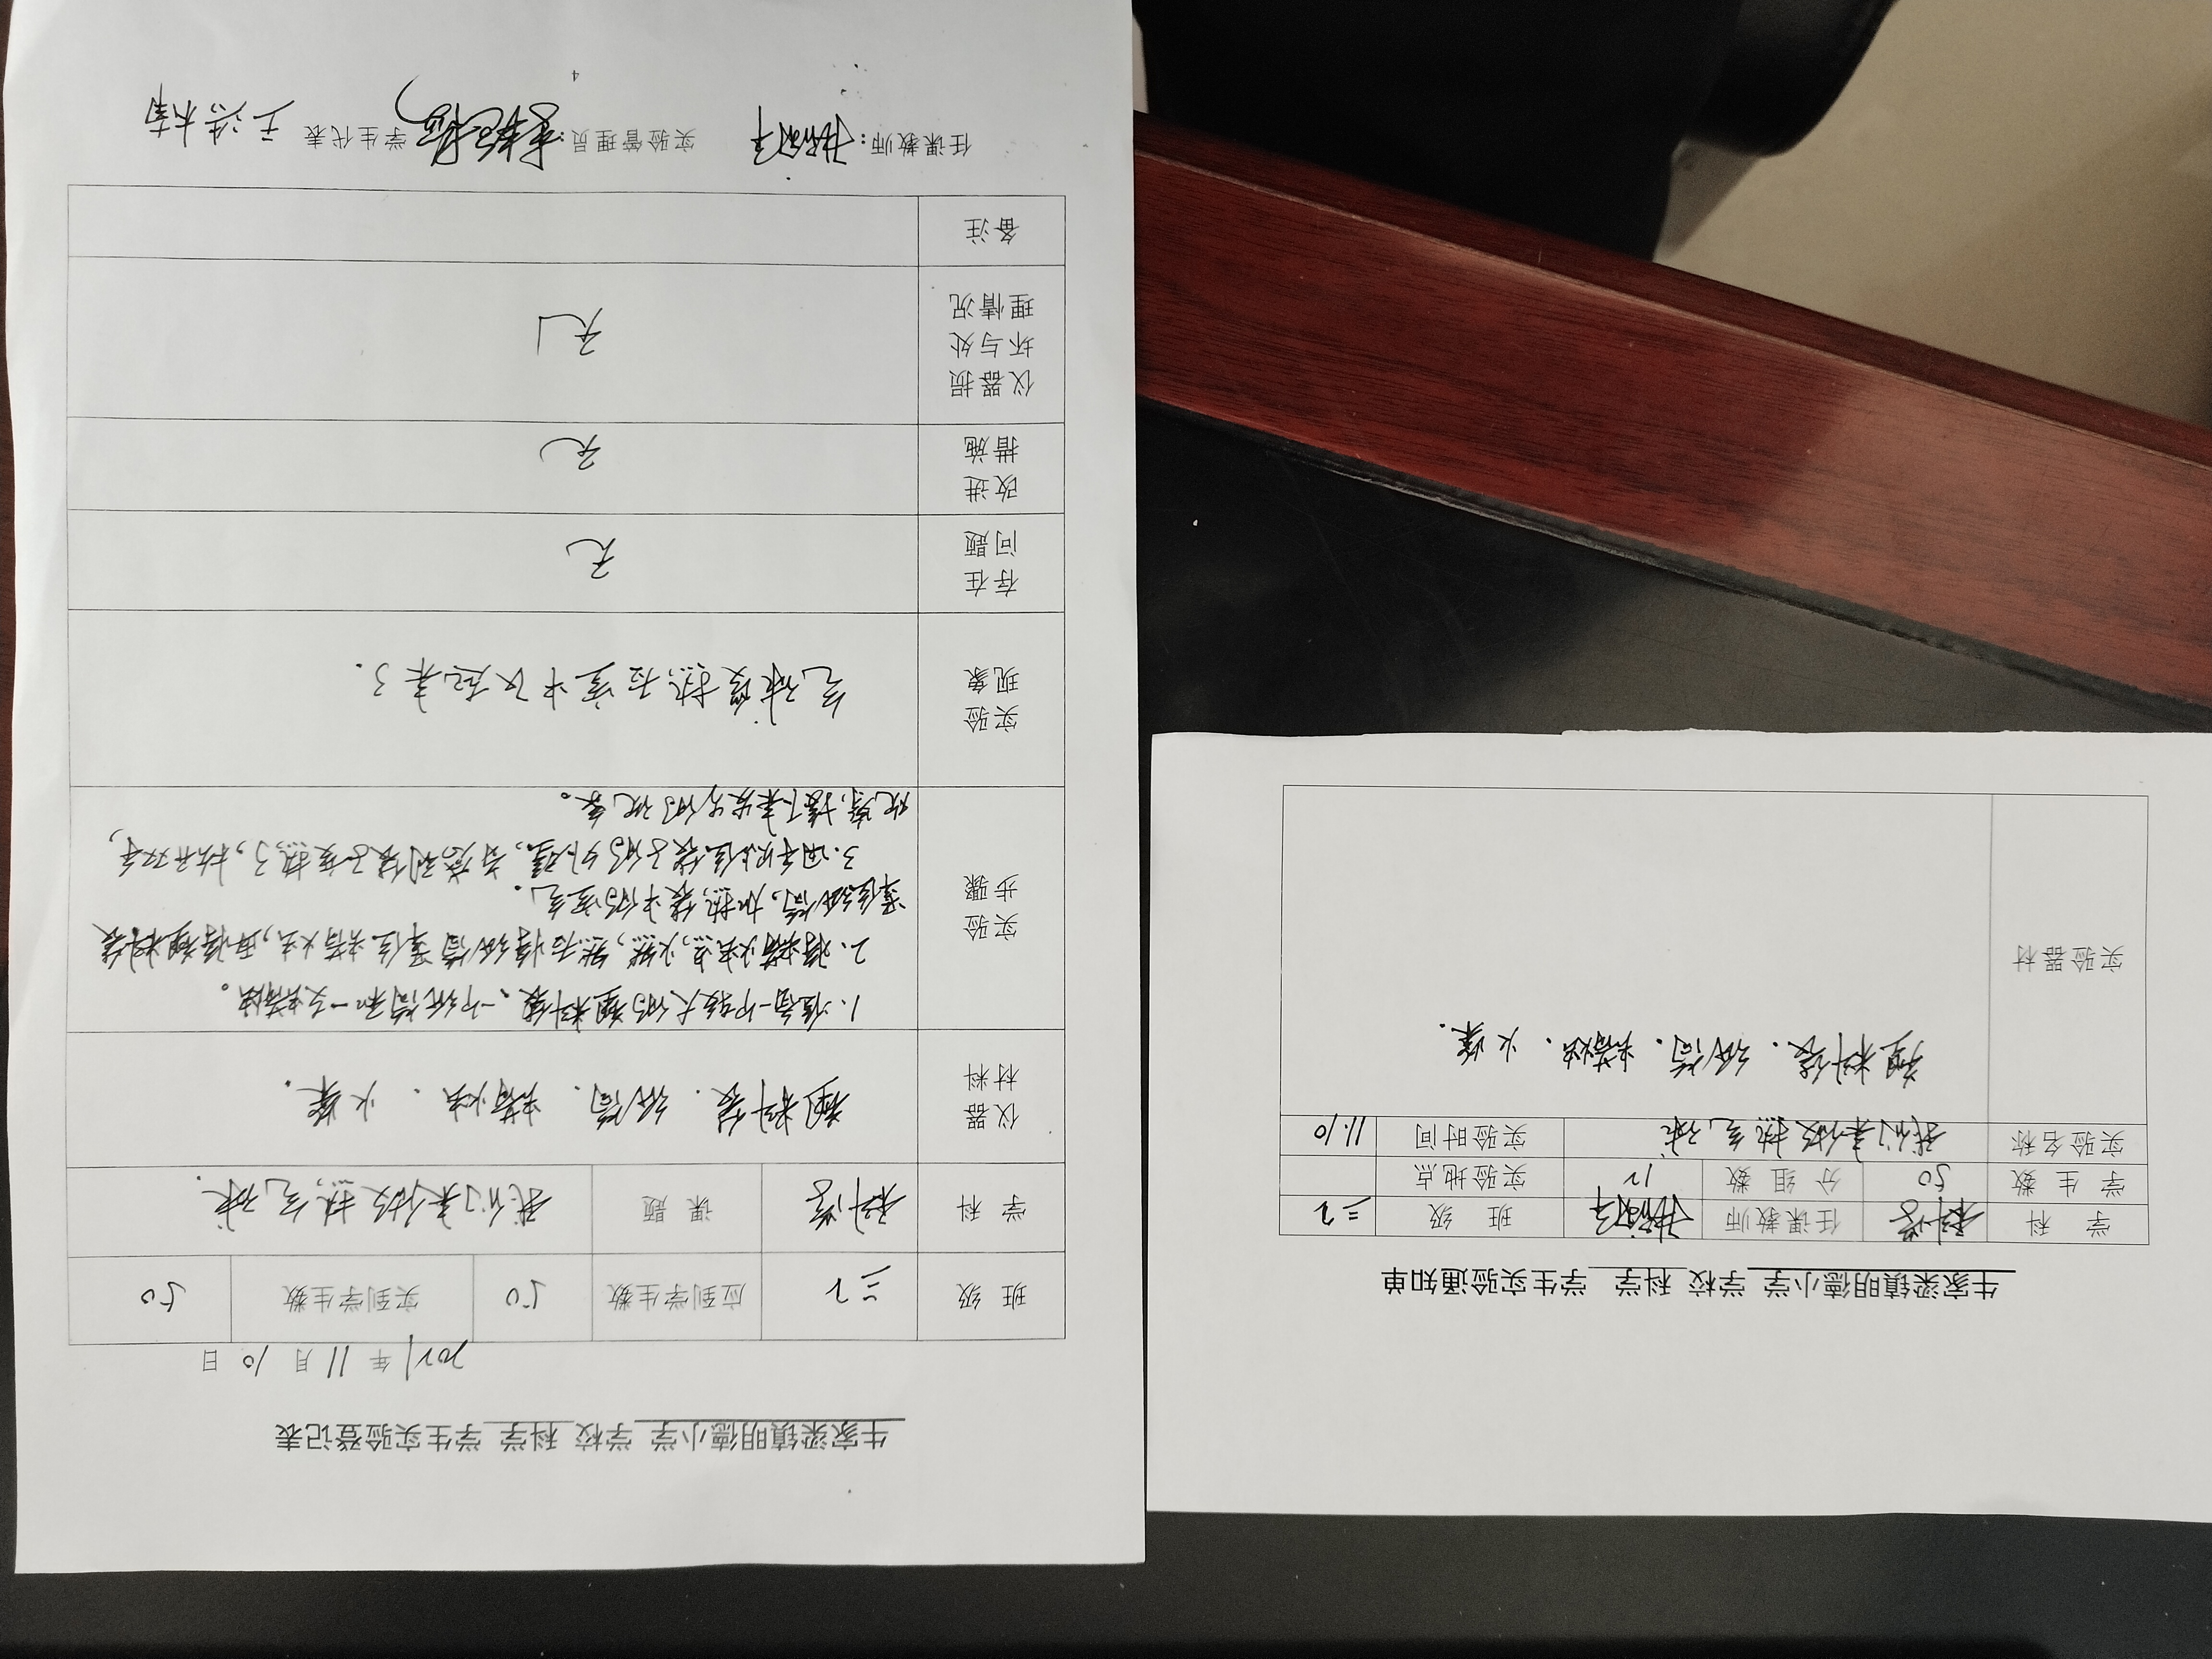 牛家梁镇明德小学 学校 科学 学生实验登记表
2021年 11月 10日
班级 三2 应到学生数 50 实到学生数 50
学科 科学 课题 我们来做热气球.
仪器材料 塑料袋. 纸筒. 蜡烛. 火柴.
实验步骤
1.准备一个较大的塑料袋、一个纸筒和一支蜡烛。
2.将蜡烛点火燃,然后将纸筒罩住蜡烛,再将塑料袋
罩住纸筒,加热袋中的空气.
3.用手扶住袋子的外壁,当感到袋子变热了,松开双手,
观察接下来发生的现象。
实验现象 气球变热,在空中飞起来了.
存在问题 无
改进措施 无
仪器损坏与处理情况 无
备注
任课教师: 实验管理员: 学生代表 王浩楠
4
牛家梁镇明德小学 学校 科学 学生实验通知单
学科 科学 任课教师 班级 三2
学生数 50 分组数 12 实验地点
实验名称 我们来做热气球 实验时间 11.10
实验器材 塑料袋. 纸筒. 蜡烛. 火柴.